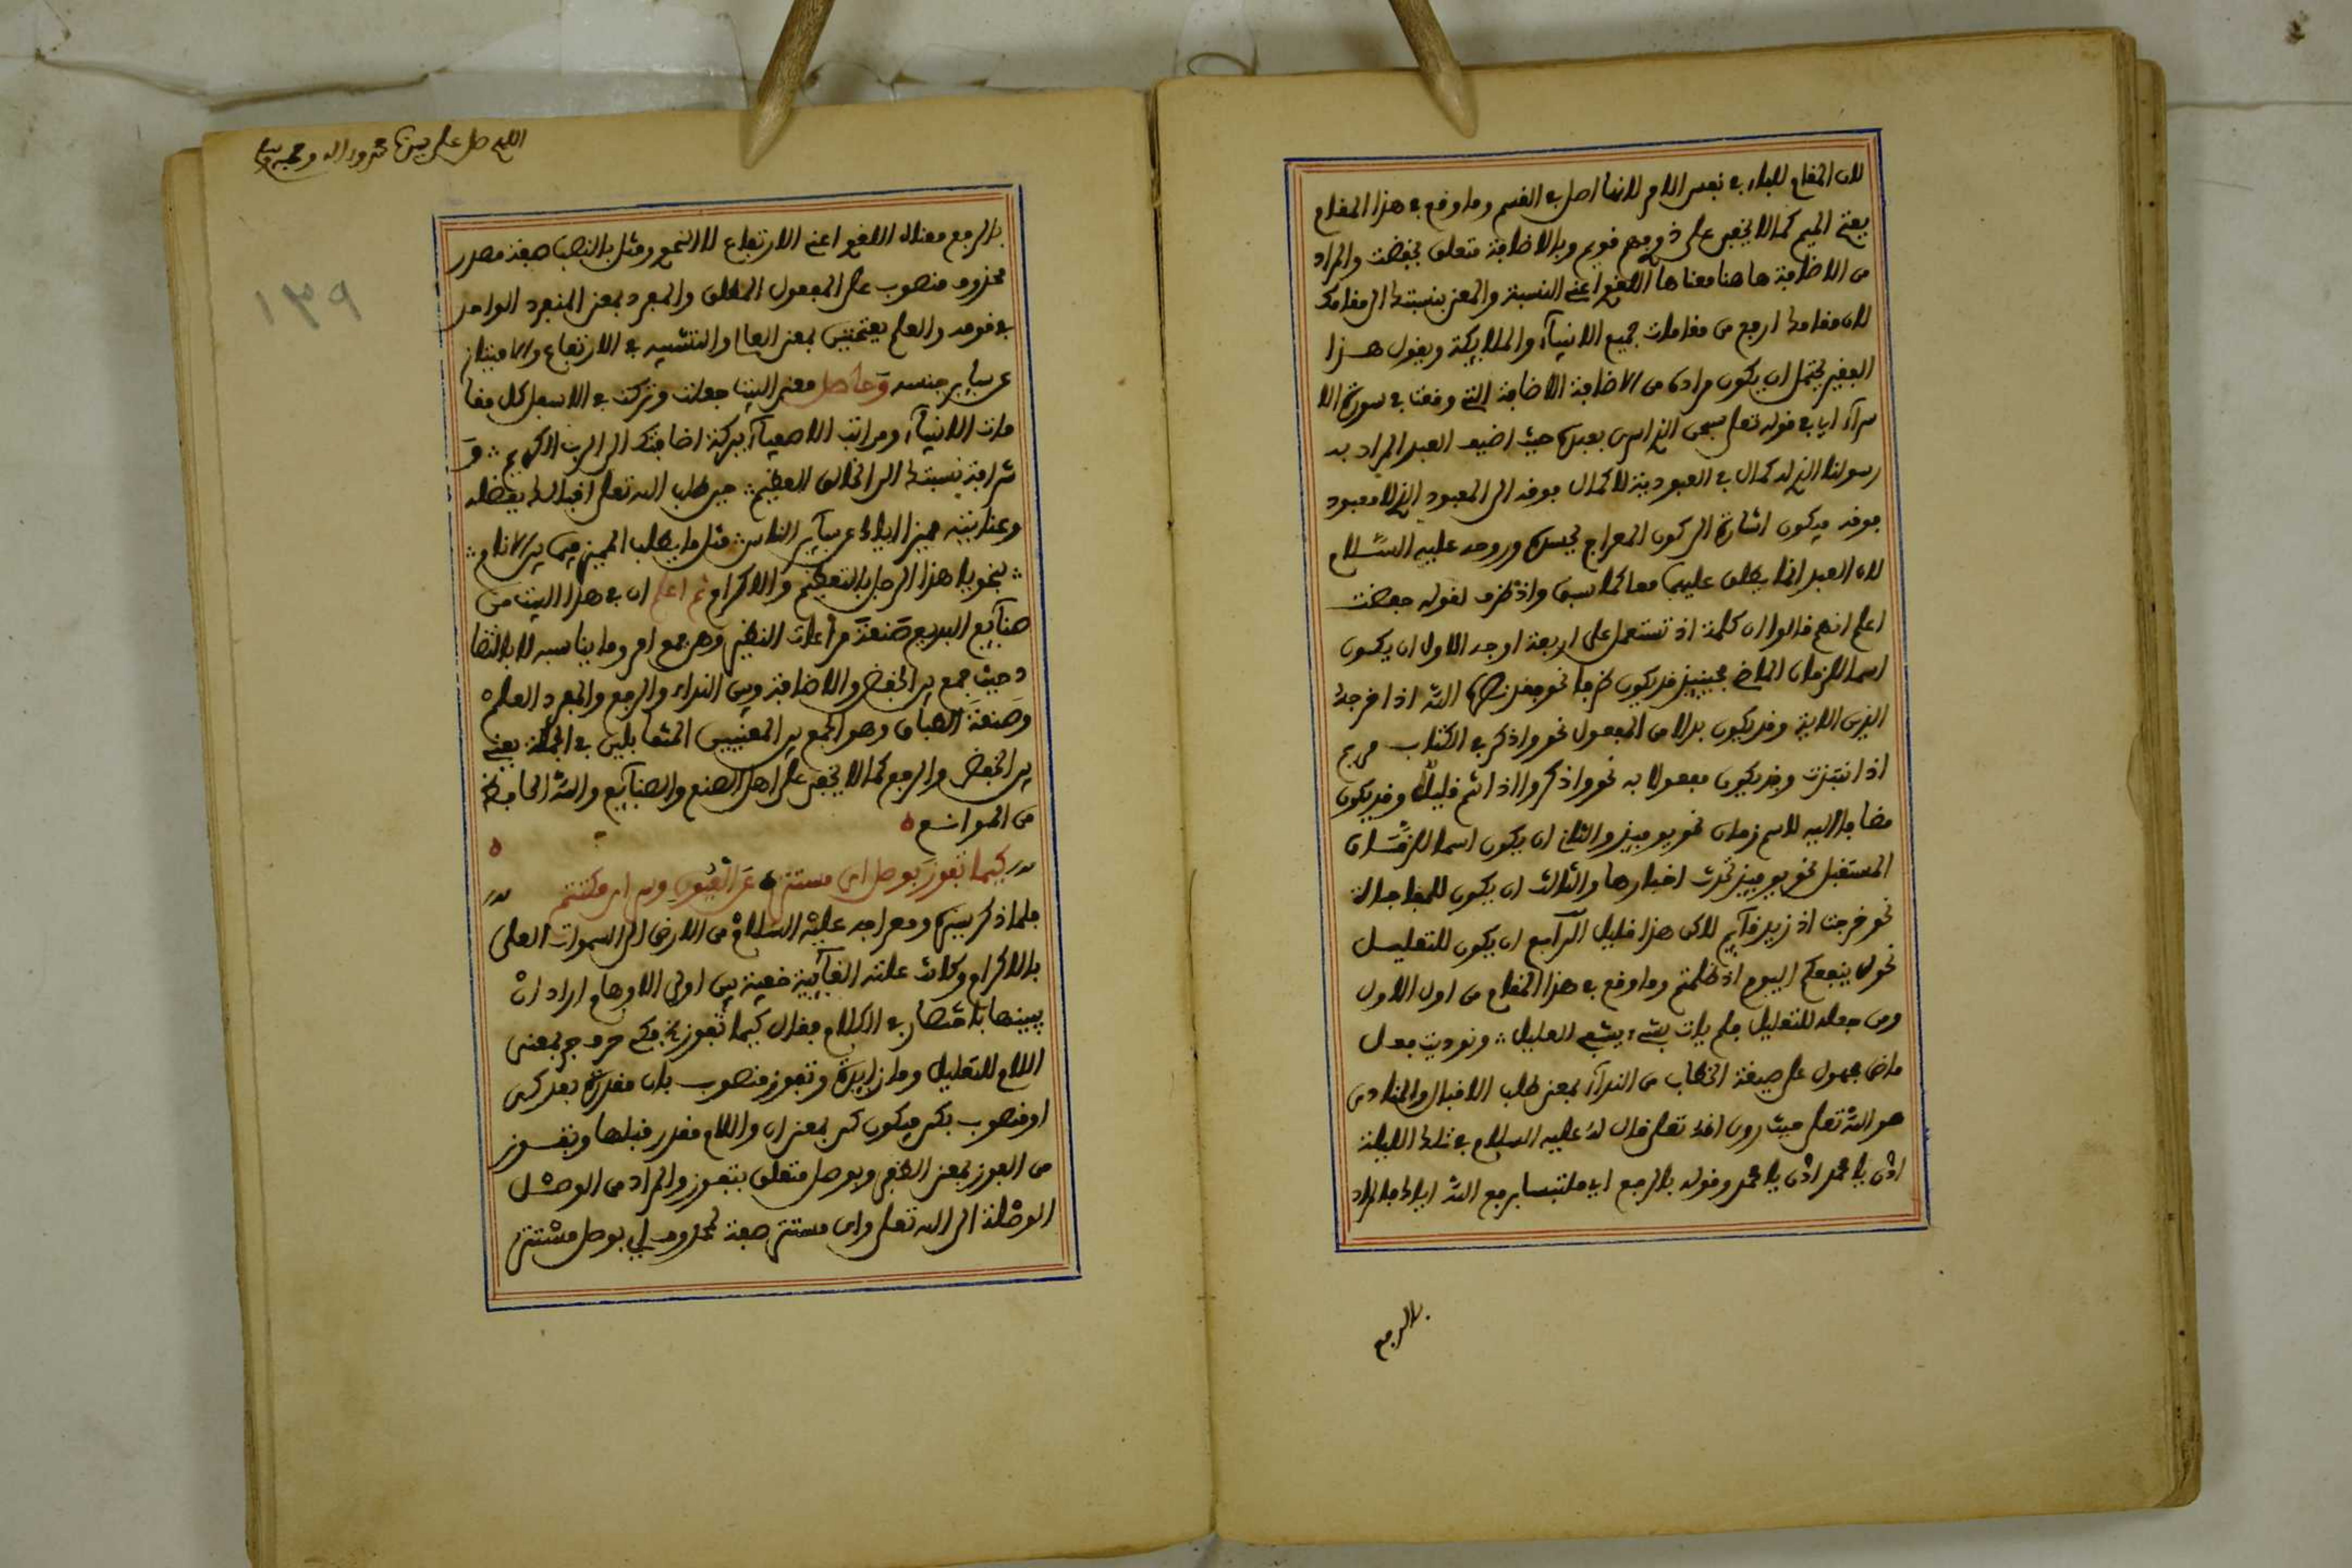 لان المقام للباء في نفس الامر لانها اصل في القسم وما وقع في هذا المقام
بفتح الميم كما لا يخفى على ذي فهم قويم وبالاضافة متعلق بخفضت والمراد
من الاضافة هاهنا معناها اللغوي اعني النسبة والمعنى بنسبتك الى مقامك
لان مقامك ارفع من مقامات جميع الانبياء والملايكة ويقول هذا
الفقير يحتمل ان يكون مراده من الاضافة الاضافة التي وقعت في سورة الا
سراء اي في قوله تعلى سبحن الذي اسرى بعبده حيث اضيف العبد المراد به
رسولنا الذي له كمال في العبودية لا كمال فوقه الى المعبود الذي لا معبود
فوقه فيكون اشارة الى كون المعراج بجسده وروحه عليه السلام
لان العبد انما يطلق عليهما معا كما سبق واذ ظرف لقوله خفضت
اعلم انهم قالوا ان كلمة اذ تستعمل على اربعة اوجه الاول ان يكون
اسما للزمان الماضي فحينيذ قد يكون ظرفا نحو فقد نصره الله اذ اخرجه
الذين الاية وقد يكون بدلا من المفعول نحو واذكر في الكتاب مريم
اذ انتبذت وقد يكون مفعولا به نحو واذكروا اذ انتم قليل وقد يكون
مضافا اليه لاسم زمان نحو يوميذ والثاني ان يكون اسما للزمان
المستقبل نحو يوميذ تحدث اخبارها والثالث ان يكون للمفاجاة
نحو خرجت اذ زيد قايم لاكن هذا قليل الرابع ان يكون للتعليل
نحو لن ينفعكم اليوم اذ ظلمتم وما وقع في هذا المقام من اول الاول
ومن جعله للتعليل فلم يات بشيء يشفي العليل ونوديت فعل
ماضي مجهول على صيغة الخطاب من النداء بمعنى طلب الاقبال والمنادى
هو الله تعلى حيث روي انه تعلى قال له عليه السلام في تلك الليلة
ادن يا محمد ادن يا محمد وقوله بالرفع اي ملتبسا برفع الله اياك فالمراد
بالرفع
اللهم صل على سيدنا محمد واله وصحبه وسلم
١٣٩
بالرفع معناه اللغوي اعني الارتفاع لا النحوي ومثل بالنصب صفة مصدر
محذوف منصوب على المفعول المطلق والمفرد بمعنى المنفرد الواحد
في قومه والعلم بفتحتين بمعنى العالي والتشبيه في الارتفاع والامتياز
عن ساير جنسه وحاصل معنى البيت جعلت وتركت في الاسفل كل مقا
مات الانبياء ومراتب الاصفياء ببركة اضافتك الى الرب الكريم و
شرافة نسبتك الى الخالق العظيم حين طلب الله تعلى اقبالك بفضله
وعنايته مميزا اياك عن ساير الناس مثل ما يطلب المميز فيما بين الانام
بنحو يا هذا الرجل بالتعظيم والاكرام ثم اعلم ان في هذا البيت من
صنايع البديع صنعة مراعات النظير وهي جمع امر وما يناسبه لا بالتضا
د حيث جمع بين الخفض والاضافة وبين النداء والرفع والمفرد العلم
وصنعة الطباق وهو الجمع بين المعنيين المتقابلين في الجملة يعني
بين الخفض والرفع كما لا يخفى على اهل الصنع والصنايع والله الحافظ
من الموانع
كيما تفوز بوصل اي مستتر عن العيون وسر اي مكتتم
فلما ذكر سيره ومعراجه عليه السلام من الارض الى السموات العلى
بالاكرام وكانت علته الغايية خفية بين اولي الاوهام اراد ان
يبينها باختصار في الكلام فقال كيما تفوز كي حرف جر بمعنى
اللام للتعليل وما زايدة وتفوز منصوب بان مقدرة بعد كي
او منصوب بكي فيكون كي بمعنى ان واللام مقدر قبلها وتفوز
من الفوز بمعنى الظفر وبوصل متعلق بتفوز والمراد من الوصل
الوصلة الى الله تعلى واي مستتر صفة لمحذوف اي بوصل مستتر